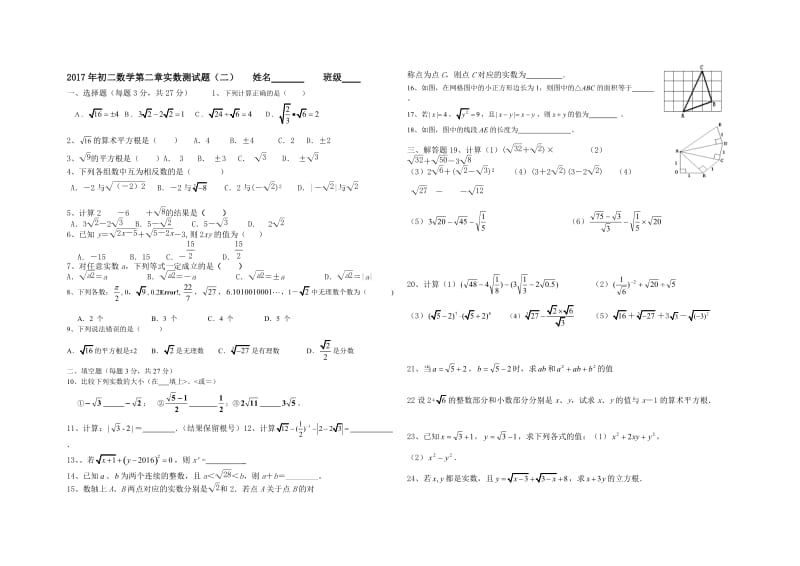 2017 年初二数学第二章实数测试题（二） 姓名_______ 班级____
一、选择题（每题 3 分，共 27 分） 1、下列计算正确的是（ ）
A．√16=±4 B．3√2-2√2=1 C．√24÷√6=4 D．√(2/3)•√6=2
2、√16 的算术平方根是（ ） A．4 B．±4 C．2 D．±2
3、√9的平方根是（ ）A． 3 B． ±3 C． √3 D． ±√3
4、下列各组数中互为相反数的是（ ）
A．-2 与√(-2)2 B．-2 与∛-8 C．2 与(-√2)2 D．|-√2|与√2
5、计算2 -6 +√8的结果是（ ）
A．3√2-2√3 B．5-√2 C．5-√3 D． 2√2
6、已知 y=√2x-5+√5-2x-3,则 2xy 的值为（ ）
A．-15 B．15 C．-15/2 D．15/2
7、对任意实数 a，下列等式一定成立的是（ ）
A．√a2=a B．√a2=-a C．√a2=±a D．√a2=|a|
8、下列各数：π/2, 0, √9, 0.2Error!, 22/7, √27, 6.1010010001…, 1-√2中无理数个数为（ ）
A．2 个 B．3 个 C．4 个 D．5 个
9、下列说法错误的是（ ）
A．√16的平方根是±2 B．√2是无理数 C．∛-27是有理数 D．√2/2是分数
二、填空题（每题 3 分，共 27 分）
10、比较下列实数的大小（在___填上>、<或=）
①-√3 _____-√2； ②(√5-1)/2 _____1/2；③2√11 _____3√5.
11、计算：|√3-2|=_______．（结果保留根号）12、计算√12-(1/2)⁻¹-|2-2√3|=__________
．
13、．若√x+1+(y-2016)²=0，则 xʸ=________
14、已知 a、b 为两个连续的整数，且 a＜√28＜b，则 a＋b＝_______．
15、数轴上 A．B 两点对应的实数分别是√2和 2．若点 A 关于点 B 的对
称点为点 C，则点 C 对应的实数为_________．
16、如图，在网格图中的小正方形边长为 1，则图中的△ABC 的面积等于______
17、若|x|=4，√y²=9，且|x-y|=x-y，则 x+y 的值为_______．
18、如图，图中的线段 AE 的长度为_____________．
三、解答题 19、计算（1）（√32+√2）× （2）
√32+√50-3√8
（3）2√6÷(√2-√3)2 （4）(3+2√2)(3-2√2) （4）
√27 - -√12
（5）3√20-√45-√(1/5) （6）(√75-√3)/√3-√(1/5)×√20
20、计算（1）(√48-4√(1/8))-(3√(1/3)-2√0.5) （2）(1/√6)⁻²+√20÷√5
（3）(√5-2)⁷·(√5+2)⁸ （4）∛27-(√2×√6)/√3 （5）√16+∛-27+3√3-√(-3)²
21、当 a=√5+2，b=√5-2时，求 ab 和 a²+ab+b² 的值
22 设 2+√6的整数部分和小数部分分别是 x、y，试求 x、y 的值与 x－1 的算术平方根．
23、已知 x=√3+1，y=√3-1，求下列各式的值：（1）x²+2xy+y²；
（2）x²-y²．
24、若 x,y 都是实数，且 y=√x-3+√3-x+8，求 x+3y 的立方根.
C
A
B
A
O
1
I
B